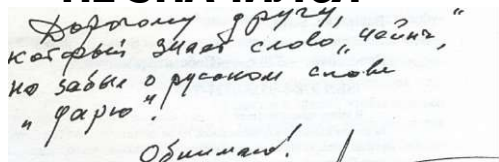 Дорогому другу,
который знает слово „чейнч“,
но забыл о русском слове
„дарю“.
Обнимаю!